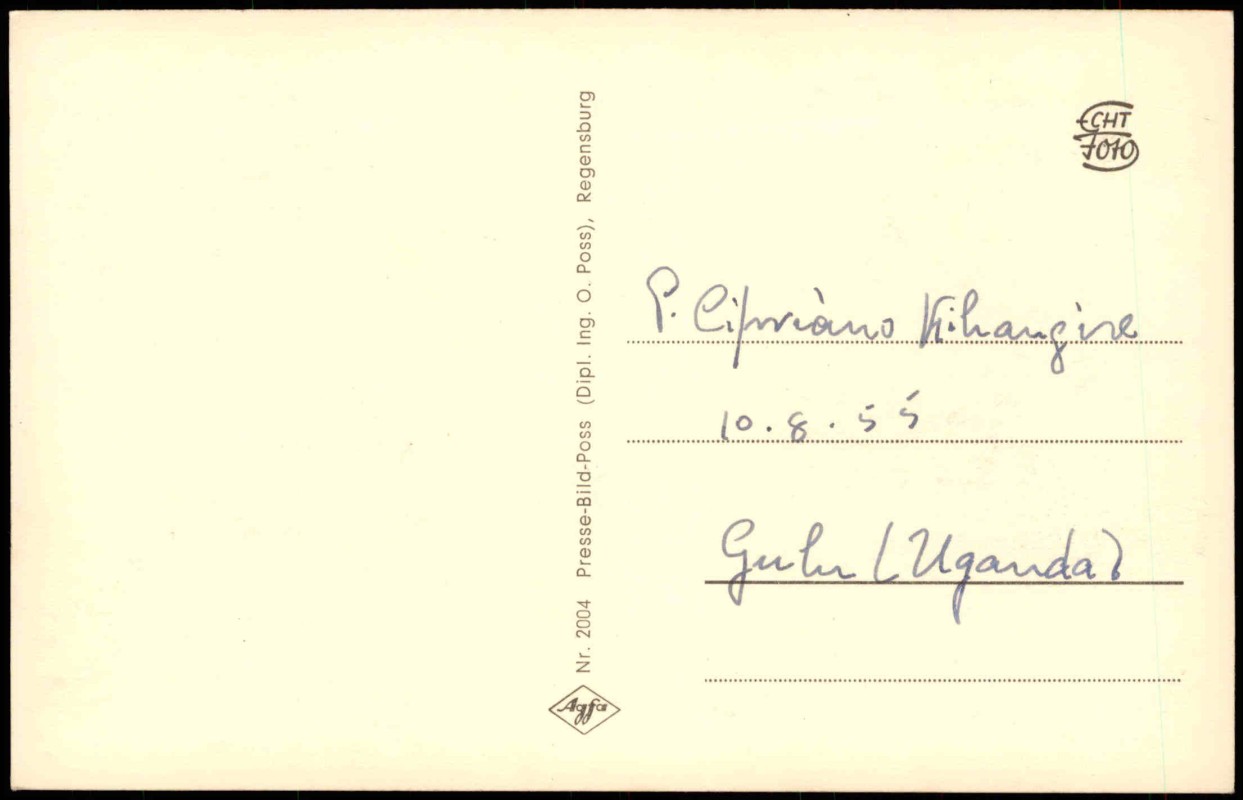 Nr. 2004 Presse-Bild-Poss (Dipl. Ing. O. Poss), Regensburg
Agfa
ECHT
FOTO
P. Cipriano Kihangire
10.8.55
Gulu (Uganda)